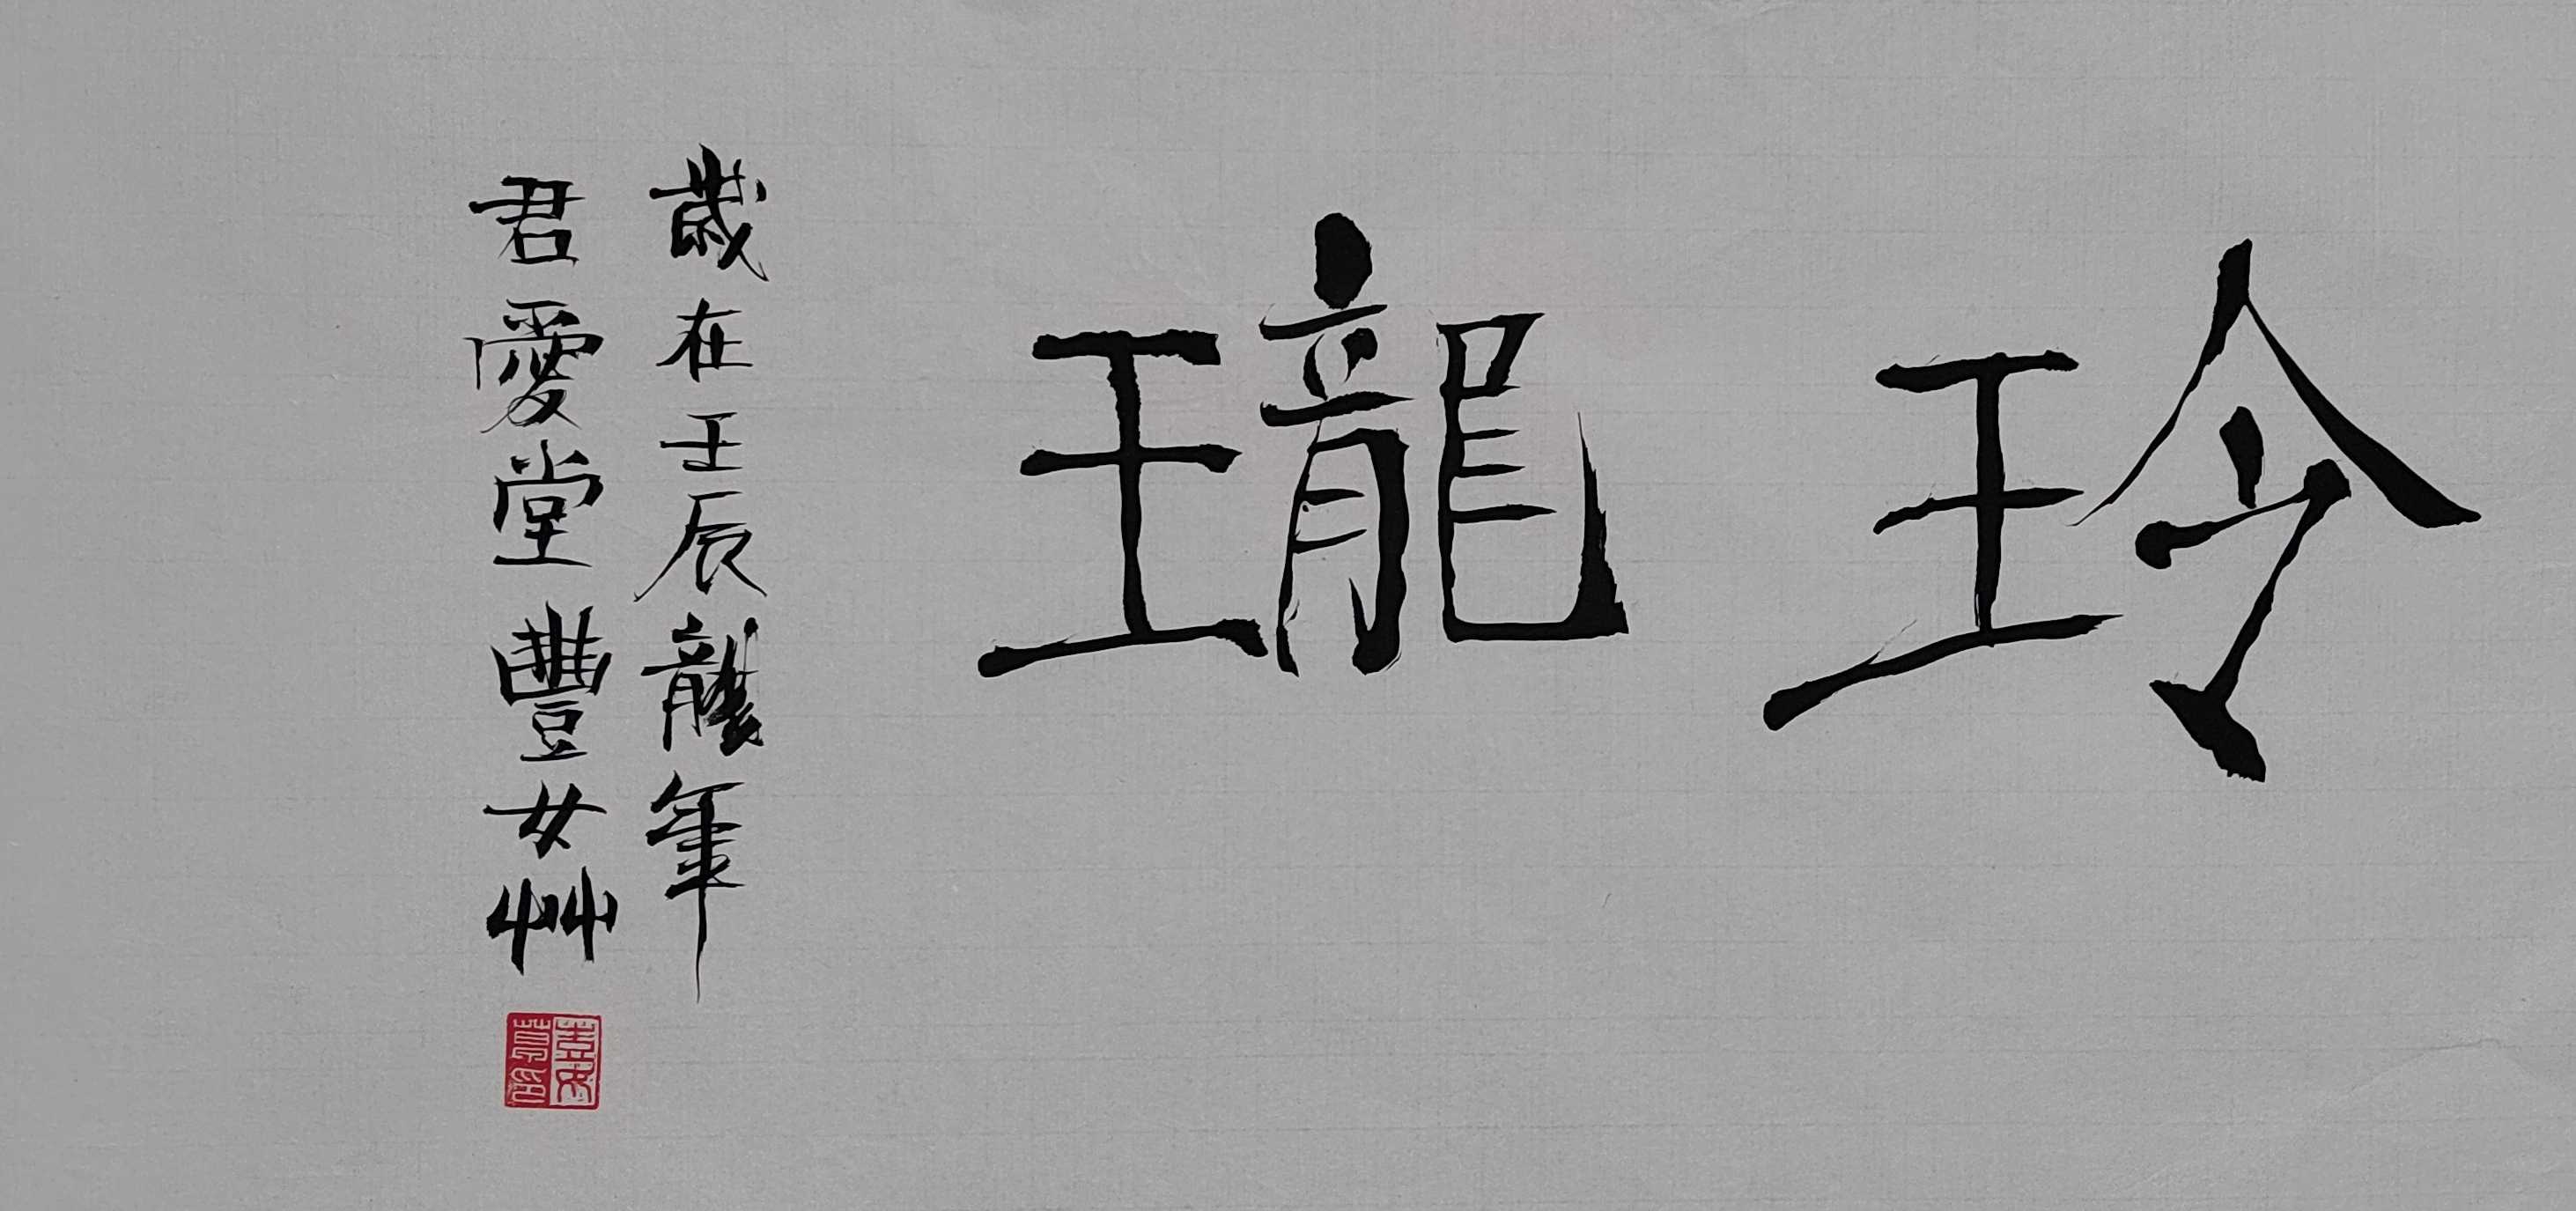 玲瓏
歲在壬辰龍年
君愛堂豐女艸